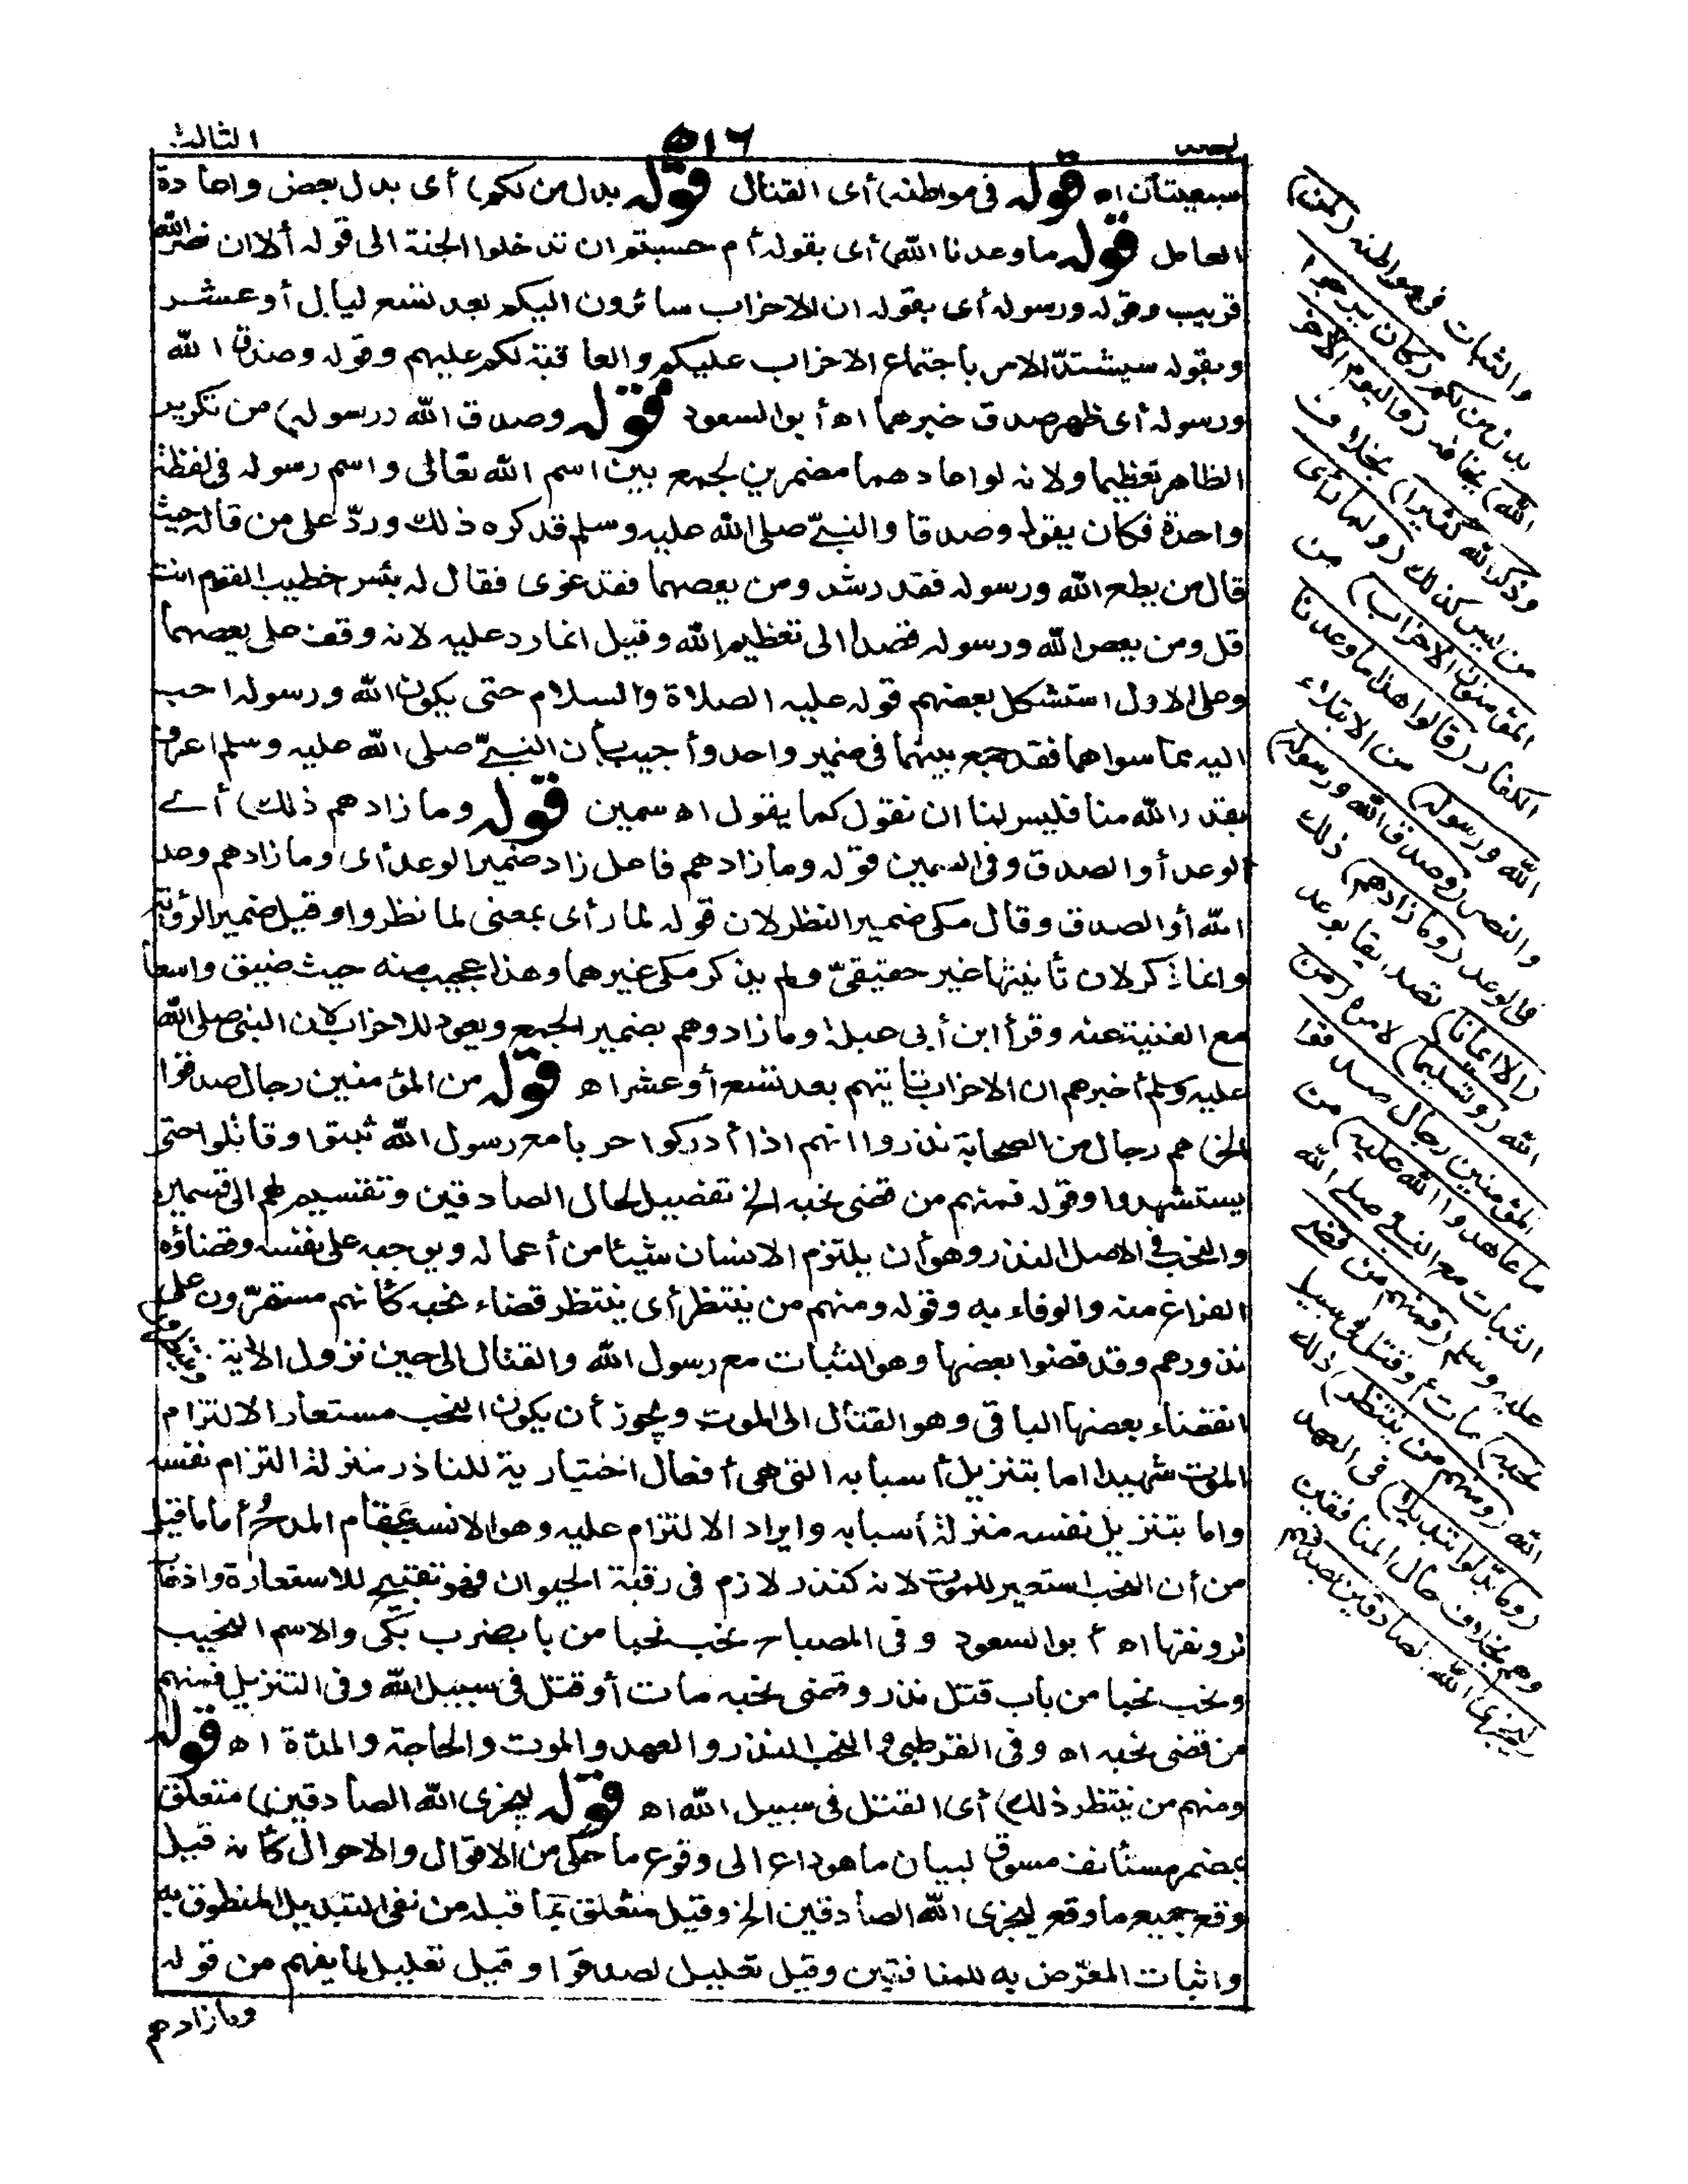 الثالث
٥١٦
سبعيتان اه قوله في مواطنه) أى القتال قوله بدل من لكم) أى بدل بعض واعادة
العامل قوله ما وعدنا الله) أى بقوله أم حسبتم ان تدخلوا الجنة الى قوله ألا ان نصر الله
قريب وقوله ورسوله أى بقوله ان الاحزاب سائرون اليكم بعد تسع ليال أو عشر
وبقوله سيشتدّ الامر باجتماع الاحزاب عليكم والعاقبة لكم عليهم وقوله وصدق الله
ورسوله أى ظهر صدق خبرهما اه أبو السعود قوله وصدق الله ورسوله) من تكرير
الظاهر تعظيما ولانه لو اعادهما مضمرين لجمع بين اسم الله تعالى واسم رسوله في لفظة
واحدة فكان يقول وصدقا والنبيّ صلى الله عليه وسلم قد كره ذلك وردّ على من قاله حيث
قال من يطع الله ورسوله فقد رشد ومن يعصهما فقد غوى فقال له بئس خطيب القوم انت
قل ومن يعص الله ورسوله قصدا الى تعظيم الله وقيل انما رد عليه لانه وقف على يعصهما
وعلى الاول استشكل بعضهم قوله عليه الصلاة والسلام حتى يكون الله ورسوله احب
اليه مما سواهما فقد جمع بينهما في ضمير واحد وأجيب بأن النبيّ صلى الله عليه وسلم اعرف
بقدر الله منا فليس لنا ان نقول كما يقول اه سمين قوله وما زادهم ذلك) أى
الوعد أو الصدق وفى السمين قوله وما زادهم فاعل زاد ضمير الوعد أى وما زادهم وعد
الله أو الصدق وقال مكى ضمير النظر لان قوله لما رأى بمعنى لما نظروا وقيل ضمير الرؤية
وانما ذكر لان تأنيثها غير حقيقىّ ولم يذكر مكى غيرهما وهذا عجيب منه حيث ضيق واسعا
مع الغنية عنه وقرأ ابن أبى عبلة وما زادوهم بضمير الجمع ويعود للاحزاب لان النبى صلى الله
عليه وسلم أخبرهم ان الاحزاب تأتيهم بعد تسع أو عشر اه قوله من المؤمنين رجال صدقوا
الخ) هم رجال من الصحابة نذروا انهم اذا أدركوا حربا مع رسول الله ثبتوا وقاتلوا حتى
يستشهدوا وقوله فمنهم من قضى نحبه الخ تفصيل لحال الصادقين وتقسيم لهم الى قسمين
والنحب فى الاصل النذر وهو أن يلتزم الانسان شيئا من أعماله ويوجبه على نفسه وقضاؤه
الفراغ منه والوفاء به وقوله ومنهم من ينتظر أى ينتظر قضاء نحبه كأنهم مستمرّون على
نذورهم وقد قضوا بعضها وهو الثبات مع رسول الله والقتال الى حين نزول الآية
انقضاء بعضها الباقى وهو القتال الى الموت ويجوز أن يكون النحب مستعارا لالتزام
الموت شهيدا اما بتنزيل أسبابه التى هى أفعال اختيارية للناذر منزلة التزام نفسه
واما بتنزيل نفسه منزلة أسبابه وايراد الالتزام عليه وهو الانسب بمقام المدح أما ما قيل
من أن النحب استعير للموت لانه كنذر لازم فى رقبة الحيوان فهو تقبيح للاستعارة واذهاب
لرونقها اه أبو السعود وفى المصباح نحب نحبا من باب ضرب بكى والاسم النحيب
ونحب نحبا من باب قتل نذر وقضى نحبه مات أو قتل فى سبيل الله وفى التنزيل فمنهم
من قضى نحبه اه وفى القرطبى والنحب النذر والعهد والموت والحاجة والمدّة اه قوله
ومنهم من ينتظر ذلك) أى القتل فى سبيل الله اه قوله ليجزى الله الصادقين) متعلق
بمضمر مستأنف مسوق لبيان ما هو داع الى وقوع ما حكى من الاقوال والاحوال كأنه قيل
وقع جميع ما وقع ليجزى الله الصادقين الخ وقيل متعلق بما قبله من نفى التبديل المنطوق به
واثبات المعرّض به للمنافقين وقيل تعليل لصدقوا وقيل تعليل لما يفهم من قوله
وما زادهم
والثبات فى مواطنه (لمن)
بدل من لكم (كان يرجوا
الله) يخافه (واليوم الآخر
وذكر الله كثيرا) بخلاف
من ليس كذلك (ولما رأى
المؤمنون الاحزاب) من
الكفار (قالوا هذا ما وعدنا
الله ورسوله) من الابتلاء
والنصر (وصدق الله ورسوله)
فى الوعد (وما زادهم) ذلك
(الا ايمانا) تصديقا بوعد
الله (وتسليما) لامره (من
المؤمنين رجال صدقوا
ما عاهدوا الله عليه) من
الثبات مع النبى صلى الله
عليه وسلم (فمنهم من قضى
نحبه) مات أو قتل فى سبيل
الله (ومنهم من ينتظر) ذلك
(وما بدّلوا تبديلا) فى العهد
وهم بخلاف حال المنافقين
(ليجزى الله الصادقين بصدقهم